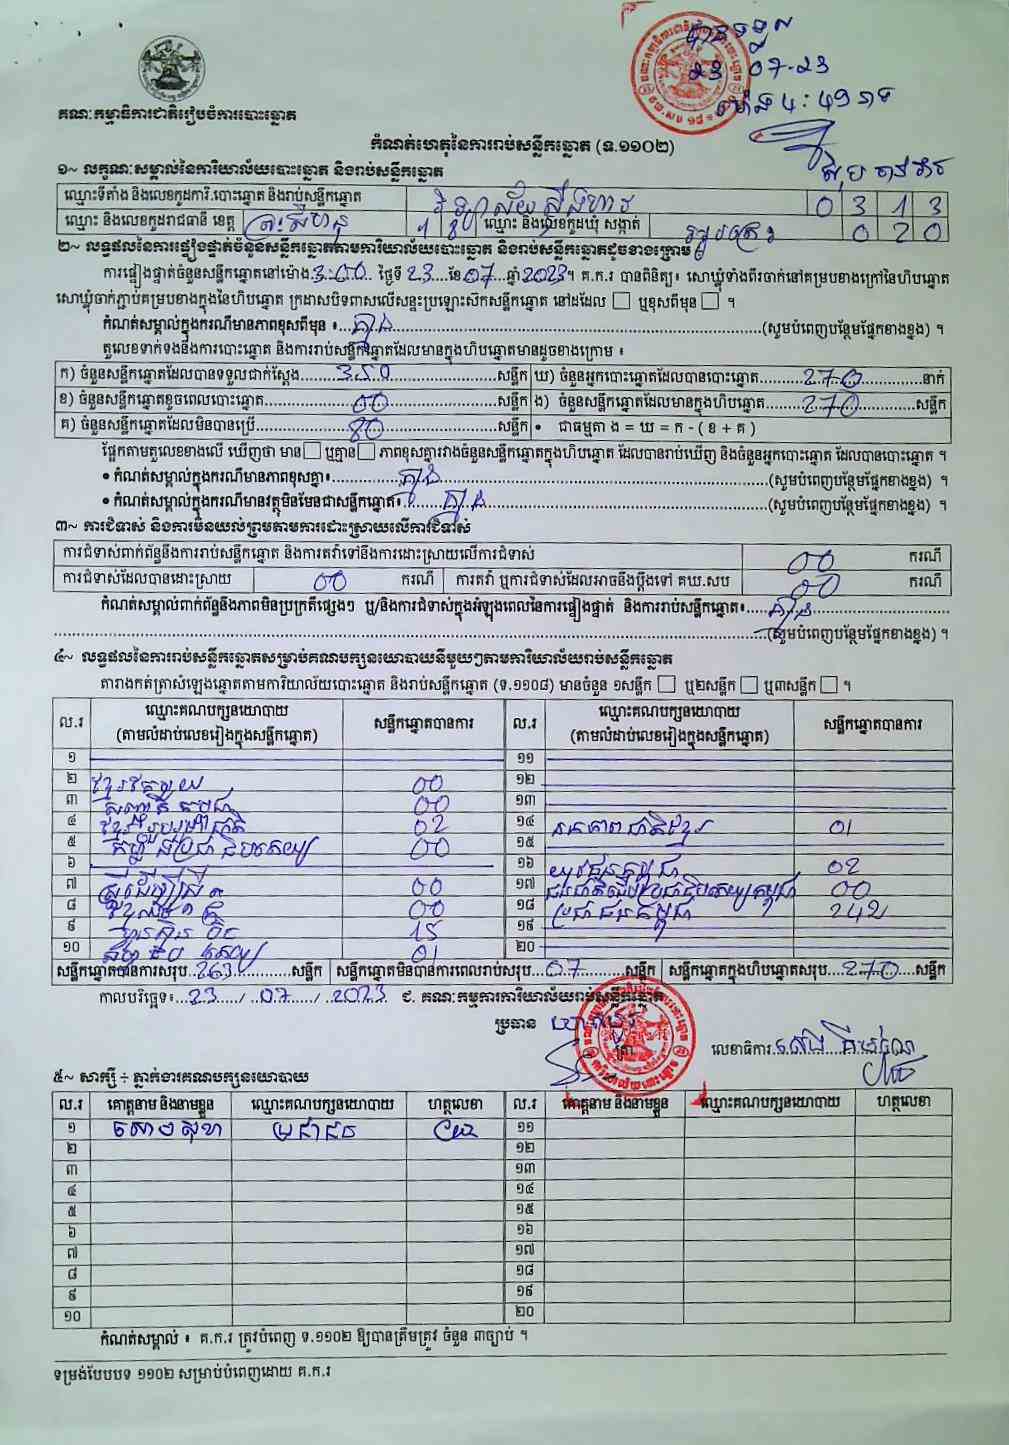 បានទទួល
23 07-23
ម៉ោង 4:49 នាទី
គណៈកម្មាធិការជាតិរៀបចំការបោះឆ្នោត
កំណត់ហេតុនៃការរាប់សន្លឹកឆ្នោត (ទ.១១០២)
១~ លក្ខណៈសម្គាល់នៃការិយាល័យបោះឆ្នោត និងរាប់សន្លឹកឆ្នោត
ឈ្មោះទីតាំង និងលេខកូដការិ.បោះឆ្នោត និងរាប់សន្លឹកឆ្នោត 0 3 1 3
ឈ្មោះ និងលេខកូដរាជធានី ខេត្ត ព្រះសីហនុ 1 8 ឈ្មោះ និងលេខកូដឃុំ សង្កាត់ 0 2 0
២~ លទ្ធផលនៃការផ្ទៀងផ្ទាត់ចំនួនសន្លឹកឆ្នោតតាមការិយាល័យបោះឆ្នោត និងរាប់សន្លឹកឆ្នោតដូចខាងក្រោម
ការផ្ទៀងផ្ទាត់ចំនួនសន្លឹកឆ្នោតនៅម៉ោង 3:00 ថ្ងៃទី 23 ខែ 07 ឆ្នាំ 2023។ គ.ក.រ បានពិនិត្យ៖ សោឃ្លុំទាំងពីរចាក់នៅគម្របខាងក្រៅនៃហិបឆ្នោត
សោឃ្លុំចាក់ភ្ជាប់គម្របខាងក្នុងនៃហិបឆ្នោត ក្រដាសបិទពាសលើសន្ទះប្រឡោះសិកសន្លឹកឆ្នោត នៅដដែល ☐ ឬខុសពីមុន ☐ ។
កំណត់សម្គាល់ក្នុងករណីមានភាពខុសពីមុន ៖ គ្មាន (សូមបំពេញបន្ថែមផ្នែកខាងខ្នង) ។
តួលេខទាក់ទងនឹងការបោះឆ្នោត និងការរាប់សន្លឹកឆ្នោតដែលមានក្នុងហិបឆ្នោតមានដូចខាងក្រោម ៖
ក) ចំនួនសន្លឹកឆ្នោតដែលបានទទួលជាក់ស្តែង 350 សន្លឹក ឃ) ចំនួនអ្នកបោះឆ្នោតដែលបានបោះឆ្នោត 270 នាក់
ខ) ចំនួនសន្លឹកឆ្នោតខូចពេលបោះឆ្នោត 00 សន្លឹក ង) ចំនួនសន្លឹកឆ្នោតដែលមានក្នុងហិបឆ្នោត 270 សន្លឹក
គ) ចំនួនសន្លឹកឆ្នោតដែលមិនបានប្រើ 80 សន្លឹក • ជាធម្មតា ង = ឃ = ក - ( ខ + គ )
ផ្អែកតាមតួលេខខាងលើ ឃើញថា មាន ☐ ឬគ្មាន ☐ ភាពខុសគ្នារវាងចំនួនសន្លឹកឆ្នោតក្នុងហិបឆ្នោត ដែលបានរាប់ឃើញ និងចំនួនអ្នកបោះឆ្នោត ដែលបានបោះឆ្នោត ។
• កំណត់សម្គាល់ក្នុងករណីមានភាពខុសគ្នា៖ គ្មាន (សូមបំពេញបន្ថែមផ្នែកខាងខ្នង) ។
• កំណត់សម្គាល់ក្នុងករណីមានវត្ថុមិនមែនជាសន្លឹកឆ្នោត៖ គ្មាន (សូមបំពេញបន្ថែមផ្នែកខាងខ្នង) ។
៣~ ការជំទាស់ និងការមិនយល់ព្រមតាមការដោះស្រាយលើការជំទាស់
ការជំទាស់ពាក់ព័ន្ធនឹងការរាប់សន្លឹកឆ្នោត និងការតវ៉ាទៅនឹងការដោះស្រាយលើការជំទាស់ 00 ករណី
ការជំទាស់ដែលបានដោះស្រាយ 00 ករណី ការតវ៉ា ឬការជំទាស់ដែលអាចនឹងប្តឹងទៅ គឃ.សប 00 ករណី
កំណត់សម្គាល់ពាក់ព័ន្ធនឹងភាពមិនប្រក្រតីផ្សេងៗ ឬ/និងការជំទាស់ក្នុងអំឡុងពេលនៃការផ្ទៀងផ្ទាត់ និងការរាប់សន្លឹកឆ្នោត៖ គ្មាន
(សូមបំពេញបន្ថែមផ្នែកខាងខ្នង) ។
៤~ លទ្ធផលនៃការរាប់សន្លឹកឆ្នោតសម្រាប់គណបក្សនយោបាយនីមួយៗតាមការិយាល័យរាប់សន្លឹកឆ្នោត
តារាងកត់ត្រាសំឡេងឆ្នោតតាមការិយាល័យបោះឆ្នោត និងរាប់សន្លឹកឆ្នោត (ទ.១១០៨) មានចំនួន ១សន្លឹក ☐ ឬ២សន្លឹក ☐ ឬ៣សន្លឹក ☐ ។
ល.រ ឈ្មោះគណបក្សនយោបាយ (តាមលំដាប់លេខរៀងក្នុងសន្លឹកឆ្នោត) សន្លឹកឆ្នោតបានការ ល.រ ឈ្មោះគណបក្សនយោបាយ (តាមលំដាប់លេខរៀងក្នុងសន្លឹកឆ្នោត) សន្លឹកឆ្នោតបានការ
១ ១១
២ ខ្មែរតែមួយ 00 ១២
៣ សញ្ជាតិកម្ពុជា 00 ១៣
៤ ខ្មែររួបរួមជាតិ 02 ១៤ ឯកភាពជាតិខ្មែរ 01
៥ កម្លាំងប្រជាធិបតេយ្យ 00 ១៥
៦ ១៦ យុវជនកម្ពុជា 02
៧ ស្ត្រីដើម្បីស្ត្រី 00 ១៧ ជនជាតិដើមប្រជាធិបតេយ្យកម្ពុជា 00
៨ 00 ១៨ ប្រជាជនកម្ពុជា 242
៩ ហ្វ៊ុនស៊ិនប៉ិច 15 ១៩
១០ 01 ២០
សន្លឹកឆ្នោតបានការសរុប 263 សន្លឹក សន្លឹកឆ្នោតមិនបានការពេលរាប់សរុប 07 សន្លឹក សន្លឹកឆ្នោតក្នុងហិបឆ្នោតសរុប 270 សន្លឹក
កាលបរិច្ឆេទ៖ 23 / 07 / 2023 ជ. គណៈកម្មការការិយាល័យរាប់សន្លឹកឆ្នោត
ប្រធាន
ត្រា លេខាធិការ
៥~ សាក្សី ÷ ភ្នាក់ងារគណបក្សនយោបាយ
ល.រ គោត្តនាម និងនាមខ្លួន ឈ្មោះគណបក្សនយោបាយ ហត្ថលេខា ល.រ គោត្តនាម និងនាមខ្លួន ឈ្មោះគណបក្សនយោបាយ ហត្ថលេខា
១ ប្រជាជន ១១
២ ១២
៣ ១៣
៤ ១៤
៥ ១៥
៦ ១៦
៧ ១៧
៨ ១៨
៩ ១៩
១០ ២០
កំណត់សម្គាល់ ៖ គ.ក.រ ត្រូវបំពេញ ទ.១១០២ ឱ្យបានត្រឹមត្រូវ ចំនួន ៣ច្បាប់ ។
ទម្រង់បែបបទ ១១០២ សម្រាប់បំពេញដោយ គ.ក.រ